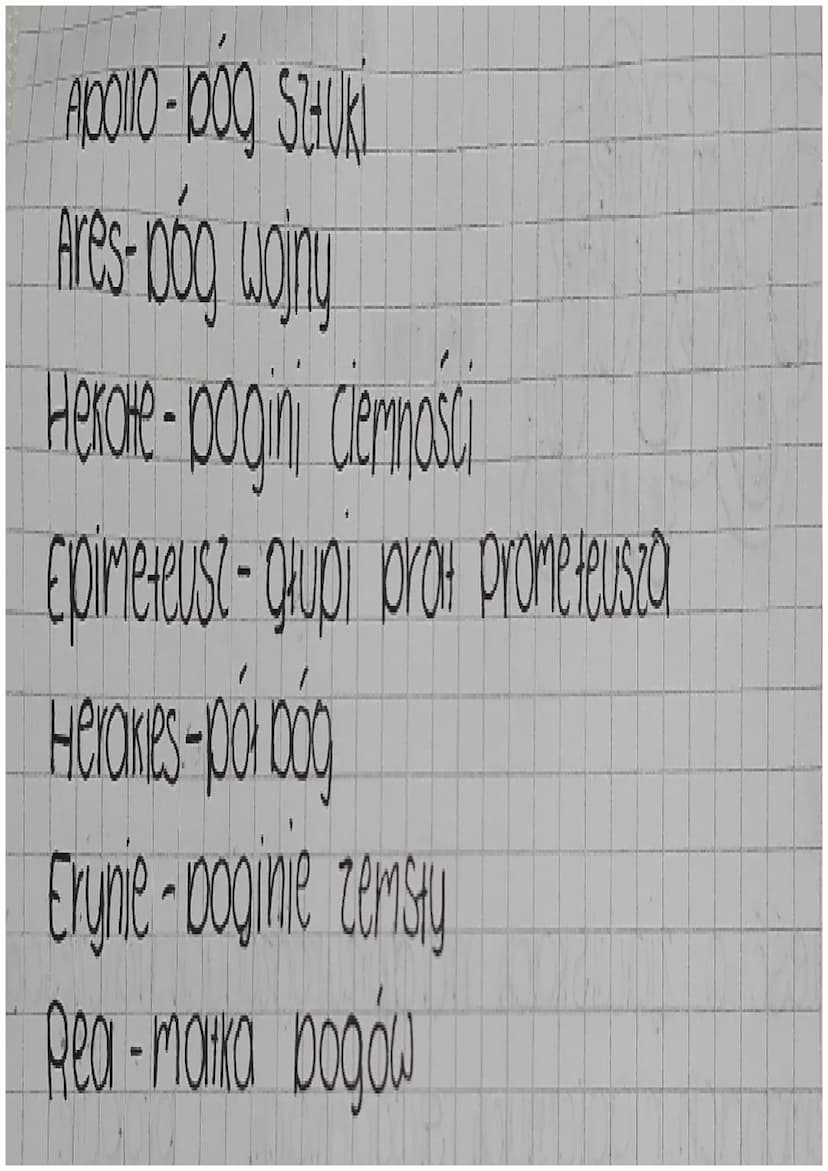 Apollo-bóg sztuki
Ares-bóg wojny
Hekate-bogini ciemności
Epimeteusz-głupi brat prometeusza
Herakles-pół bóg
Erynie-boginie zemsty
Rea-matka bogów